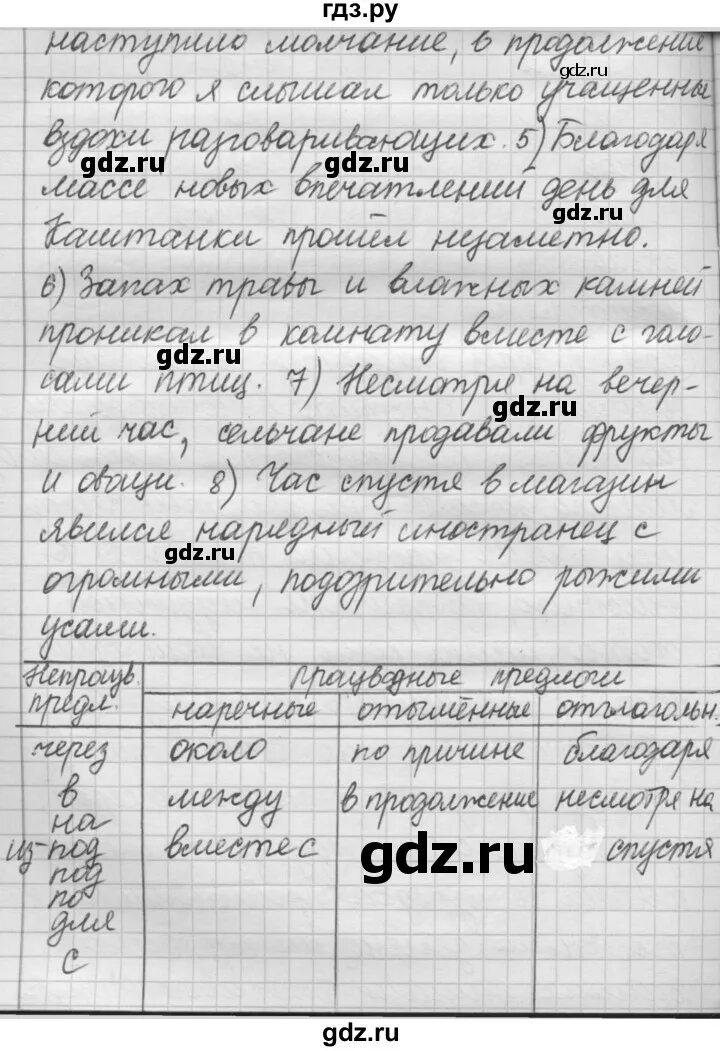 гдз.ру
наступило молчание, в продолжение
которого я слышал только учащенны
gdz.ru
вздохи разговаривающих. 5) Благодаря
gdz.ru
массе новых впечатлений день для
gdz.ru
Каштанки прошёл незаметно.
6) Запах травы и влажных камней
проникал в комнату вместе с голо-
gdz.ru
сами птиц. 7) Несмотря на вечер-
gdz.ru
ний час, сельчане продавали фрукты
и овощи. 8) Час спустя в магазин
явился нарядный иностранец с
gdz.ru
огромными, подозрительно рыжими
gdz.ru
усами.
Непроизв. предл. производные предлоги
наречные отымённые отглагольн.
через около по причине благодаря
в между в продолжение несмотря на
на
из-под вместе с спустя
gdz.ru
под
по
для
с
gdz.ru